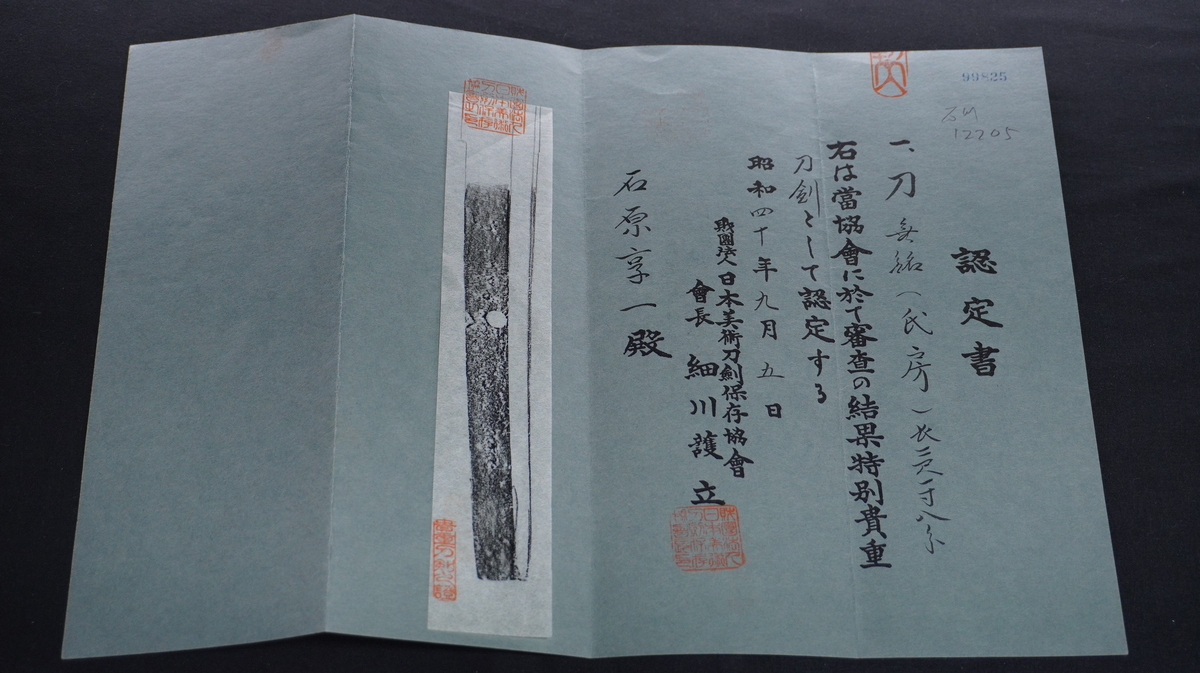 99825
12205
認定書
一、刀 無銘(氏房)長二尺一寸八分
右は當協會に於て審査の結果特別貴重
刀劍として認定する
昭和四十年九月五日
財團法人日本美術刀劍保存協會
會長 細川護立
石原享一殿